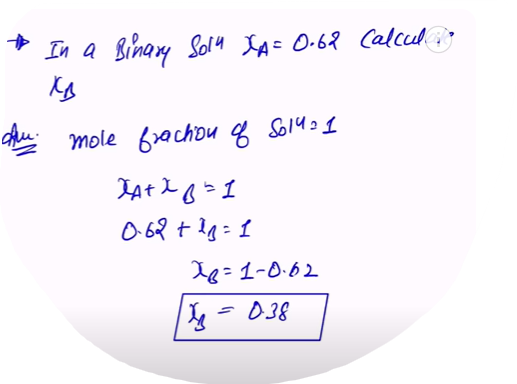 → In a Binary Sol4 xA = 0.62 Calculate
xB
Ans. mole fraction of Sol4 = 1
xA + xB = 1
0.62 + xB = 1
xB = 1 - 0.62
xB = 0.38